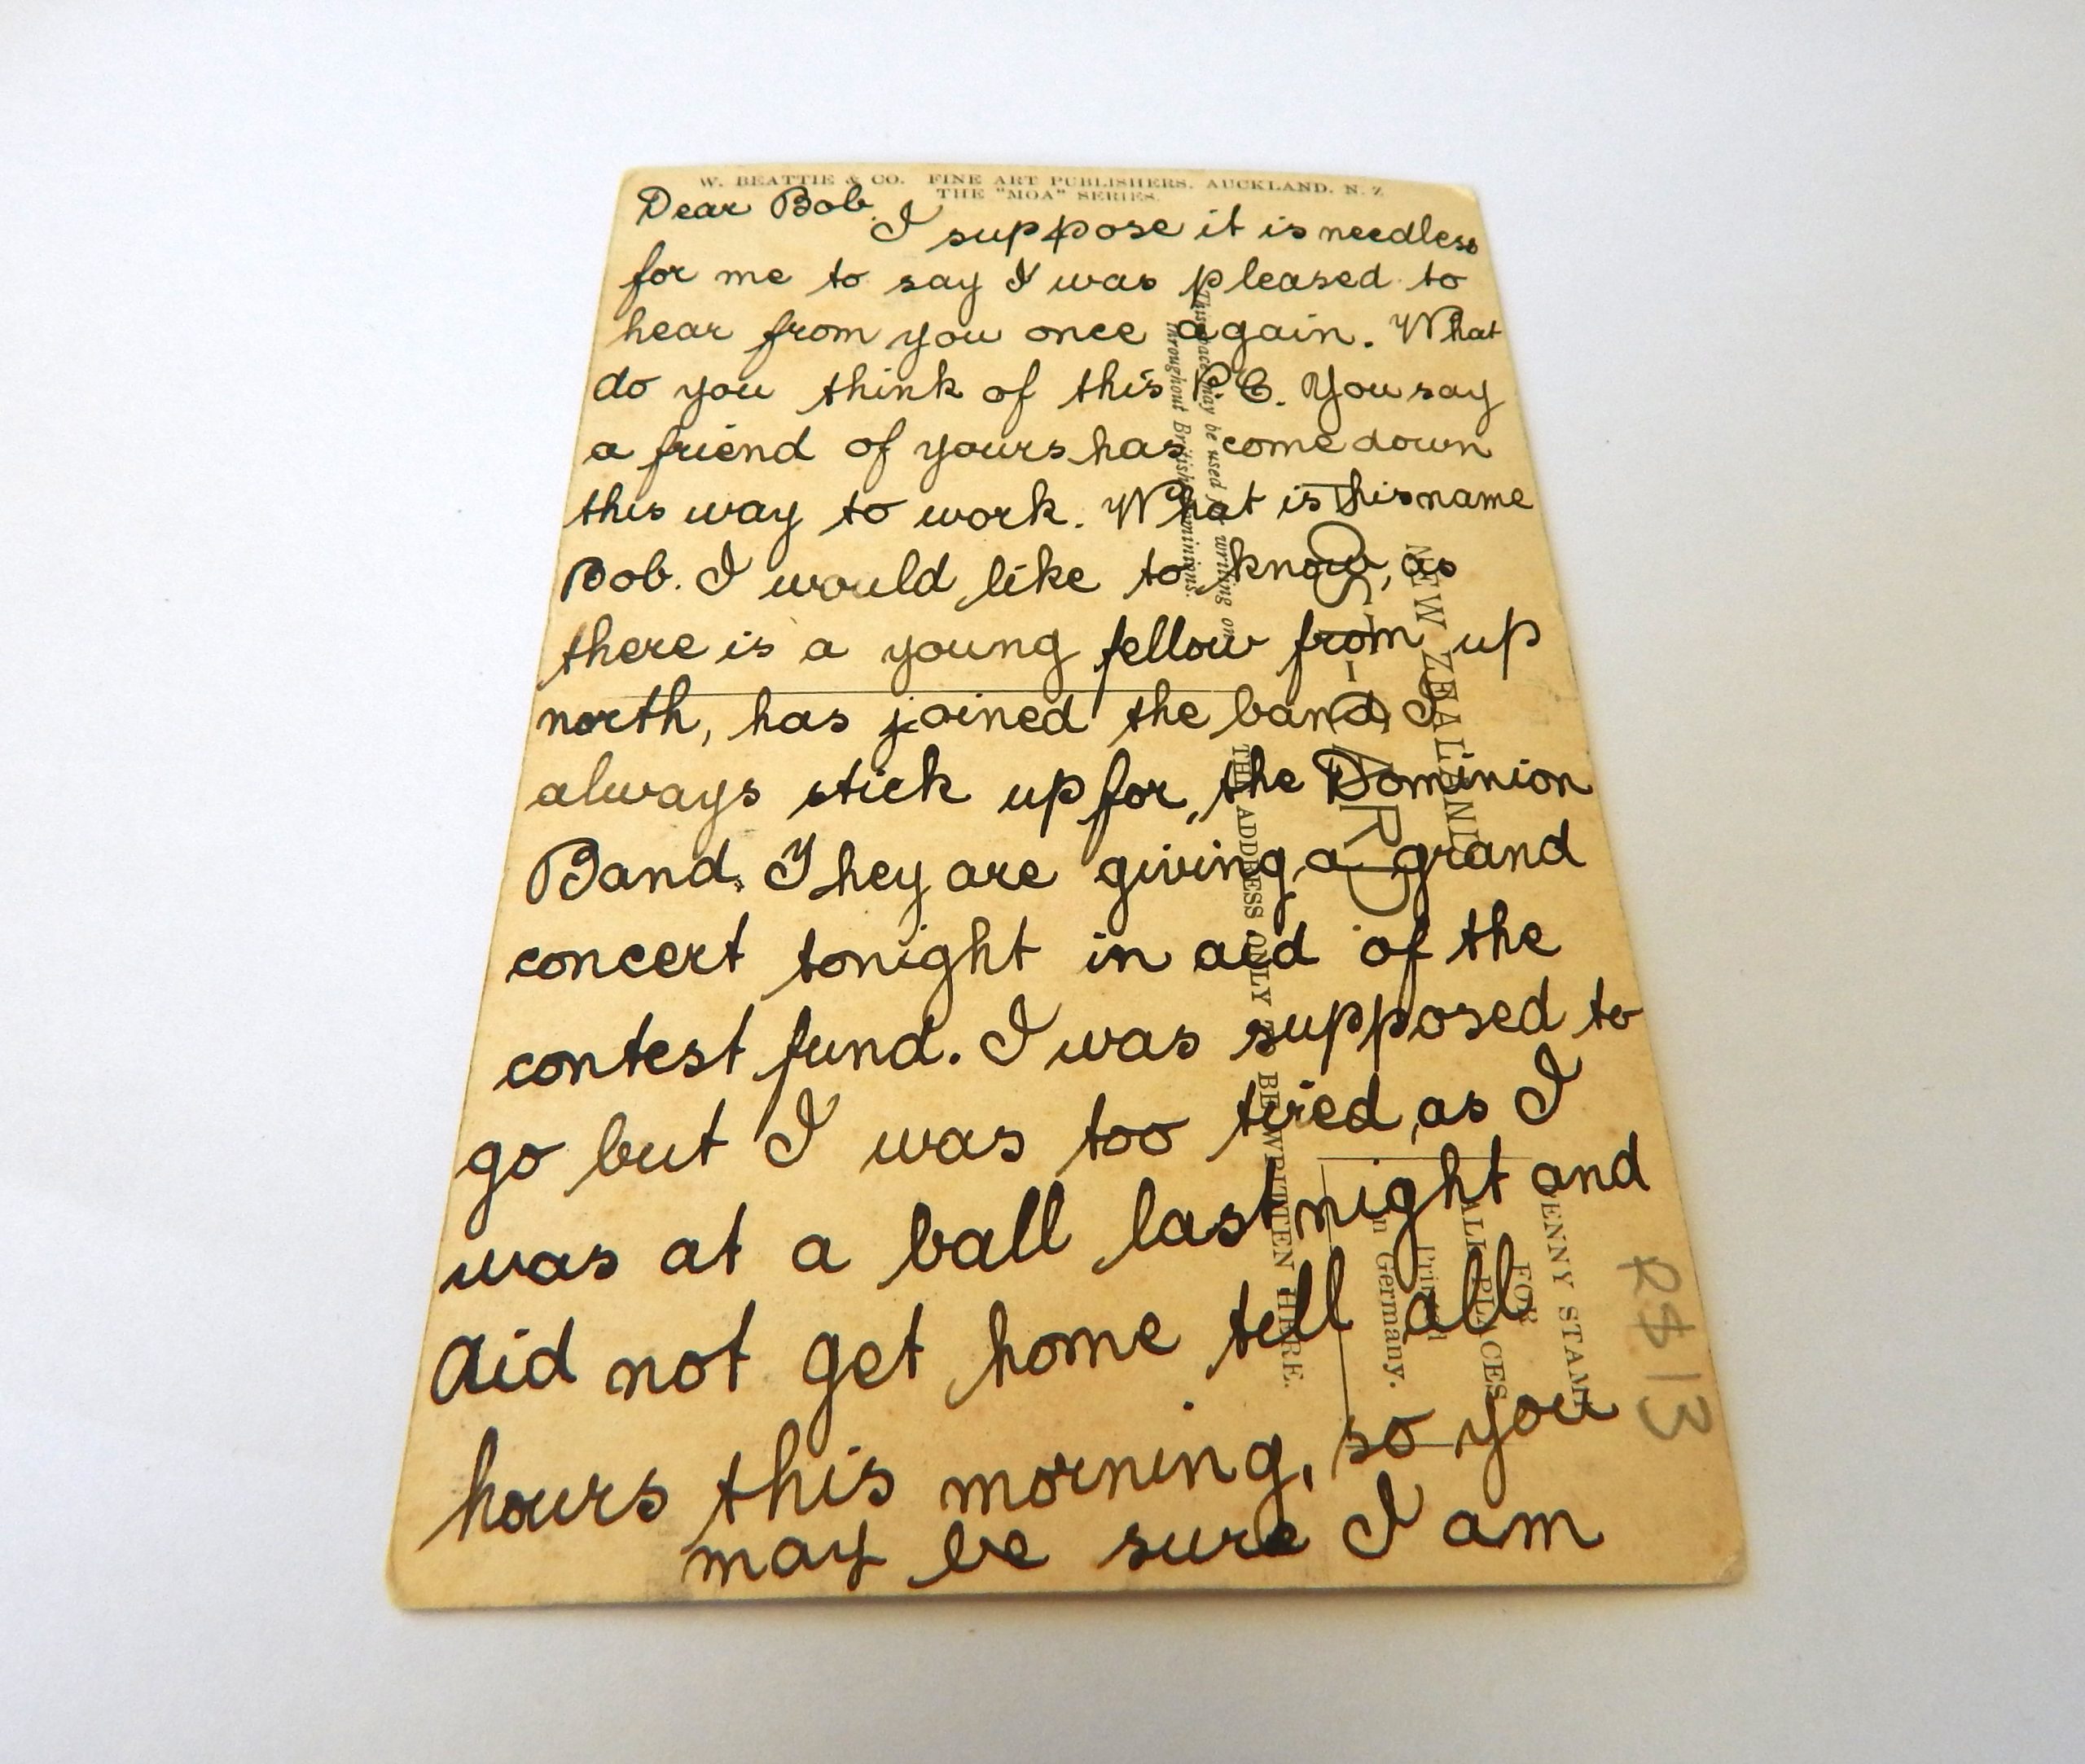 W. BEATTIE & CO. FINE ART PUBLISHERS. AUCKLAND. N. Z.
THE "MOA" SERIES.
Dear Bob.
I suppose it is needless
for me to say I was pleased to
hear from you once again. What
do you think of this P.C. You say
a friend of yours has come down
this way to work. What is his name
Bob. I would like to know, as
there is a young fellow from up
north, has joined the band I
always stick up for, the Dominion
Band. They are giving a grand
concert tonight in aid of the
contest fund. I was supposed to
go but I was too tired, as I
was at a ball last night and
did not get home tell all
hours this morning, so you
may be sure I am
NEW ZEALAND
POST-CARD
This space may be used for writing on
throughout British Dominions.
THE ADDRESS ONLY TO BE WRITTEN HERE.
PENNY STAMP
FOR
ALL PLACES
Printed
in Germany.
R$13